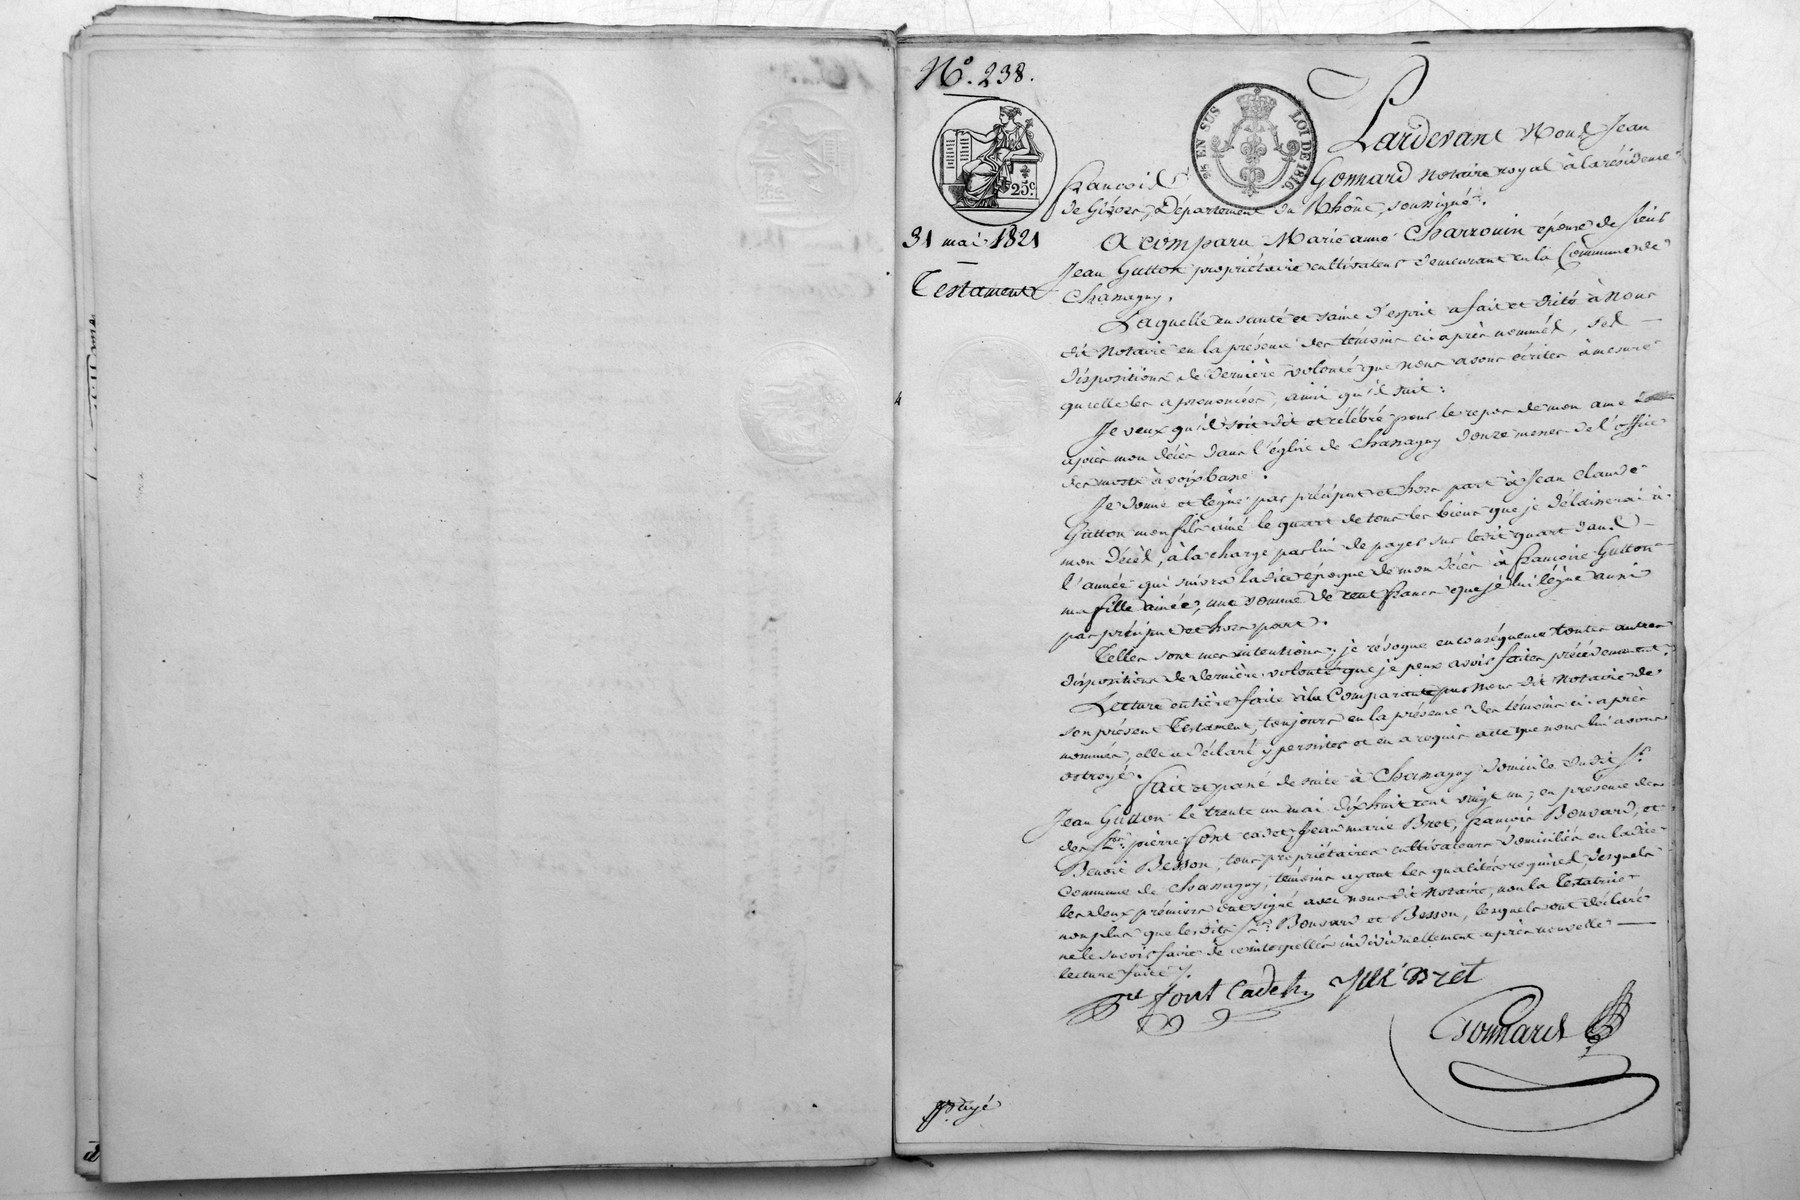 N°. 238.
25 EN SUS
LOI DE 1816.
25c.
31 mai 1821
Testament
Pardevant Nous Jean
François Gonnard notaire royal à la résidence
de Givors, Département du Rhône, soussigné.
A comparu Marie anne Charvouin épouse de Sieur
Jean Gutton propriétaire cultivateur demeurant en la Commune de
Chassagny.
Laquelle en santé et saine d'esprit a fait et dicté à Nous
dit Notaire en la présence des témoins ci-après nommés, ses
dispositions de dernière volonté que nous avons écrites à mesure
qu'elle les a prononcées, ainsi qu'il suit :
Je veux qu'il soit dit et célébré pour le repos de mon ame
après mon décès dans l'église de Chassagny douze messes de l'office
des morts à voix basse.
Je donne et lègue par préciput et hors part à Jean Claude
Gutton mon fils ainé le quart de tous les biens que je délaisserai à
mon Décès, à la charge par lui de payer sur ledit quart dans
l'année qui suivra ladite époque de mon décès à françoise Gutton
ma fille ainée, une somme de cent francs que je lui lègue aussi
par préciput et hors part.
Telles sont mes intentions ; je révoque en conséquence toutes autres
dispositions de dernière volonté que je peux avoir faites précédemment.
Lecture entière faite à la Comparante par Nous dit Notaire de
son présent Testament, toujours en la présence des témoins ci-après
nommés, elle a déclaré y persister et en a requis acte que nous lui avons
octroyé.
Fait et passé de suite à Chassagny domicile dudit Sr.
Jean Gutton le trente un mai dix huit cent vingt un ; en présence de
des Srs. pierre font cadet, Jean marie Bret, françois Bonvard, et
Benoit Besson, tous propriétaires cultivateurs domiciliés en ladite
Commune de Chassagny, témoins ayant les qualités requises, desquels
les deux premiers ont signé avec nous dit Notaire, non la Testatrice
non plus que lesdits Srs. Bonvard et Besson, lesquels ont déclaré
ne le savoir faire de ce interpellés individuellement après nouvelle
lecture faite.
Pre font Cadet Jm Bret
Gonnard
payé